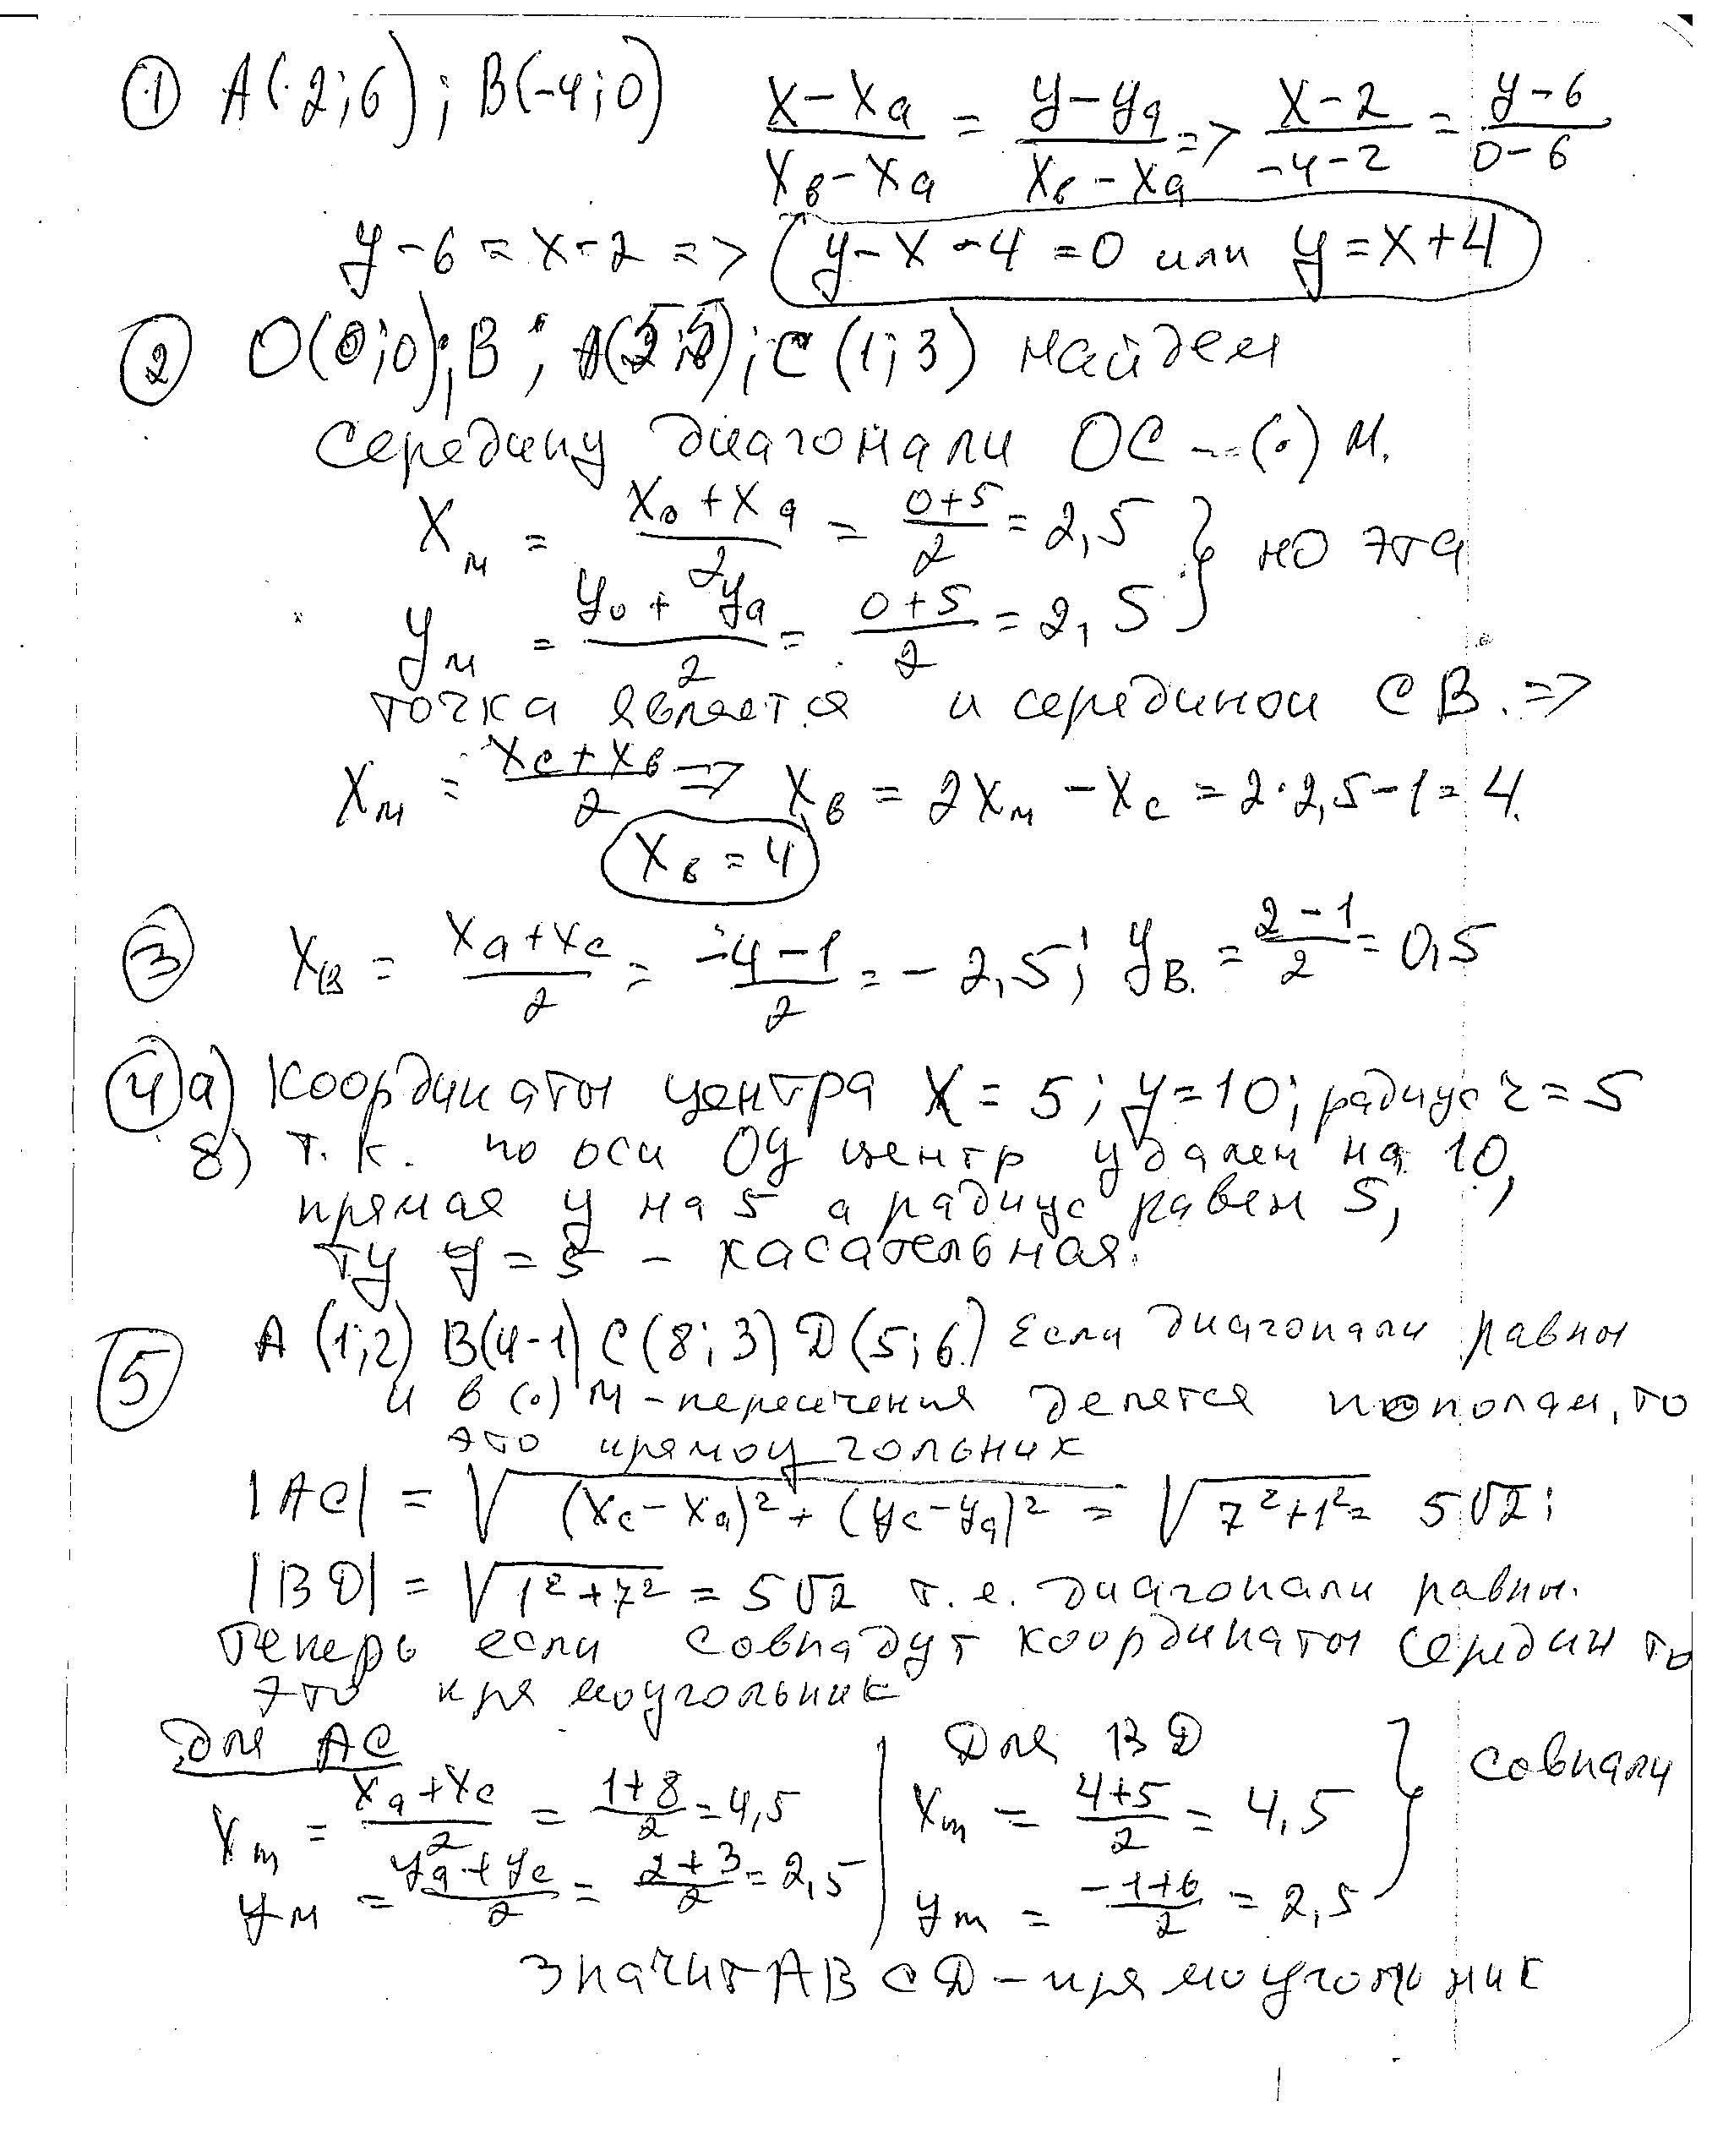 ① A(2;6); B(-4;0) (x-xа)/(xв-xа) = (y-yа)/(xв-xа) => (x-2)/(-4-2) = (y-6)/(0-6)
y-6=x-2 => y-x-4=0 или y=x+4
② O(0;0); B; A(5;5); C(1;3) найдем
середину диагонали OC -- (.) M.
xм = (xо+xа)/2 = (0+5)/2 = 2,5 } но эта
yм = (yо+yа)/2 = (0+5)/2 = 2,5
точка является и серединой CB. =>
xм = (xс+xв)/2 => xв = 2xм - xс = 2·2,5-1=4.
xв = 4
③ xв = (xа+xс)/2 = (-4-1)/2 = -2,5; yв = (2-1)/2 = 0,5
④ а) Координаты центра x=5; y=10; радиус r=5
б) т.к. по оси OY центр удален на 10,
прямая y на 5 а радиус равен 5,
то y=5 - касательная.
⑤ A(1;2) B(4-1) C(8;3) D(5;6) Если диагонали равны
и в (.) M-пересечения делятся пополам, то
это прямоугольник
|AC| = √((xс-xа)²+(yс-yа)²) = √(7²+1²) = 5√2;
|BD| = √(1²+7²) = 5√2 т.е. диагонали равны.
теперь если совпадут координаты середин то
это прямоугольник
для AC | Для BD } совпали
xm = (xа+xс)/2 = (1+8)/2 = 4,5 | xm = (4+5)/2 = 4,5
yм = (yа+yс)/2 = (2+3)/2 = 2,5 | ym = (-1+6)/2 = 2,5
значит ABCD-прямоугольник